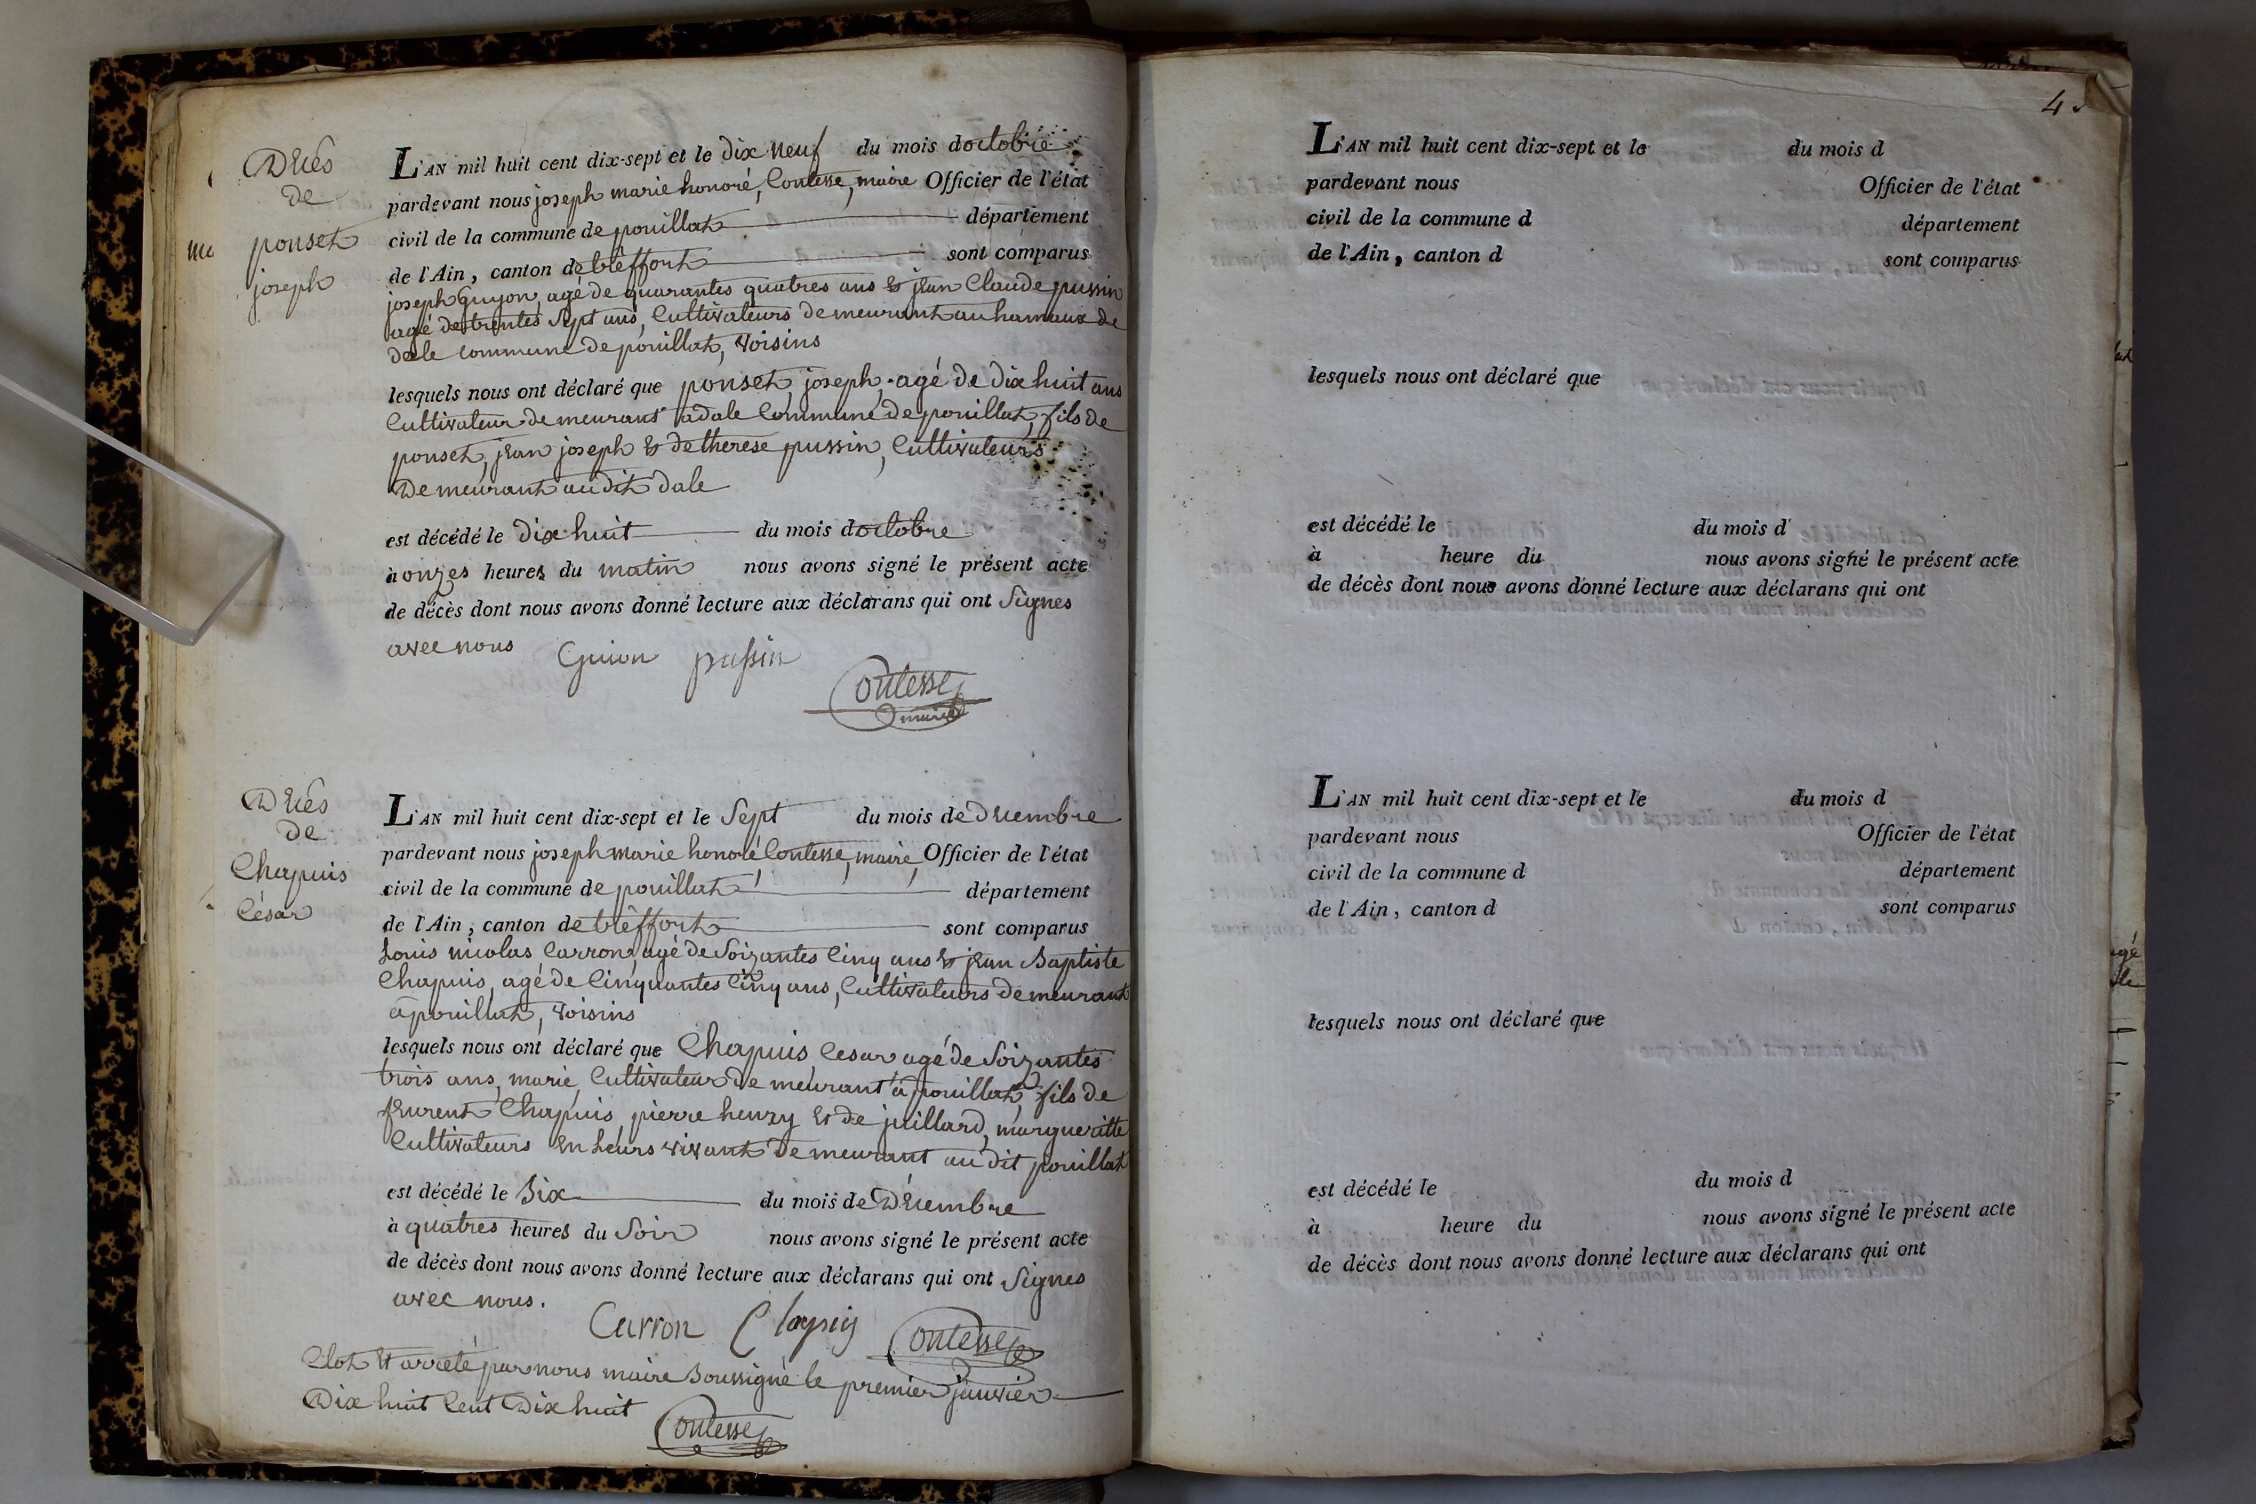 Décés
de
ponset
joseph
L'AN mil huit cent dix-sept et le dix neuf du mois doctobre
pardevant nous joseph marie honoré, Contesse, maire Officier de l'état
civil de la commune de pouillat département
de l'Ain, canton de trêffort sont comparus
joseph Guyon, agé de quarantes quatres ans et jean Claude pussin
agé de trentes sept ans, Cultivateurs demeurant au hamaux de
dale commune de pouillat, voisins
lesquels nous ont déclaré que ponset, joseph, agé de dix huit ans
Cultivateur demeurant a dale Commune de pouillat, fils de
ponset, jean joseph et de therese pussin, Cultivateurs
Demeurant au dit dale
est décédé le Dix huit du mois doctobre
à onzes heures du matin nous avons signé le présent acte
de décès dont nous avons donné lecture aux déclarans qui ont Signes
avec nous
Guion pussin
Contesse
maire
Décés
De
Chapuis
César
L'AN mil huit cent dix-sept et le Sept du mois de Décembre
pardevant nous joseph marie honoré Contesse, maire, Officier de l'état
civil de la commune de pouillat département
de l'Ain, canton de trêffort sont comparus
Louis nicolas Carron, agé de Soizantes Cinq ans et jean Baptiste
Chapuis, agé de Cinquantes Cinq ans, Cultivateurs demeurant
à pouillat, voisins
lesquels nous ont déclaré que Chapuis Cesar agé de Soizantes
trois ans, marié, Cultivateur De meurant à pouillat, fils de
feurent Chapuis pierre henry et de juillard, margueritte
Cultivateurs en leurs vivant Demeurant au dit pouillat
est décédé le Six du mois de Décembre
à quatres heures du Soir nous avons signé le présent acte
de décès dont nous avons donné lecture aux déclarans qui ont Signes
avec nous.
Carron Chapuis Contesse
Clot et arrété par nous maire Soussigné le premier janvier
Dix huit Cent Dix huit
Contesse
4
L'AN mil huit cent dix-sept et le du mois d
pardevant nous Officier de l'état
civil de la commune d département
de l'Ain, canton d sont comparus
lesquels nous ont déclaré que
est décédé le du mois d
à heure du nous avons signé le présent acte
de décès dont nous avons donné lecture aux déclarans qui ont
L'AN mil huit cent dix-sept et le du mois d
pardevant nous Officier de l'état
civil de la commune d département
de l'Ain, canton d sont comparus
lesquels nous ont déclaré que
est décédé le du mois d
à heure du nous avons signé le présent acte
de décès dont nous avons donné lecture aux déclarans qui ont